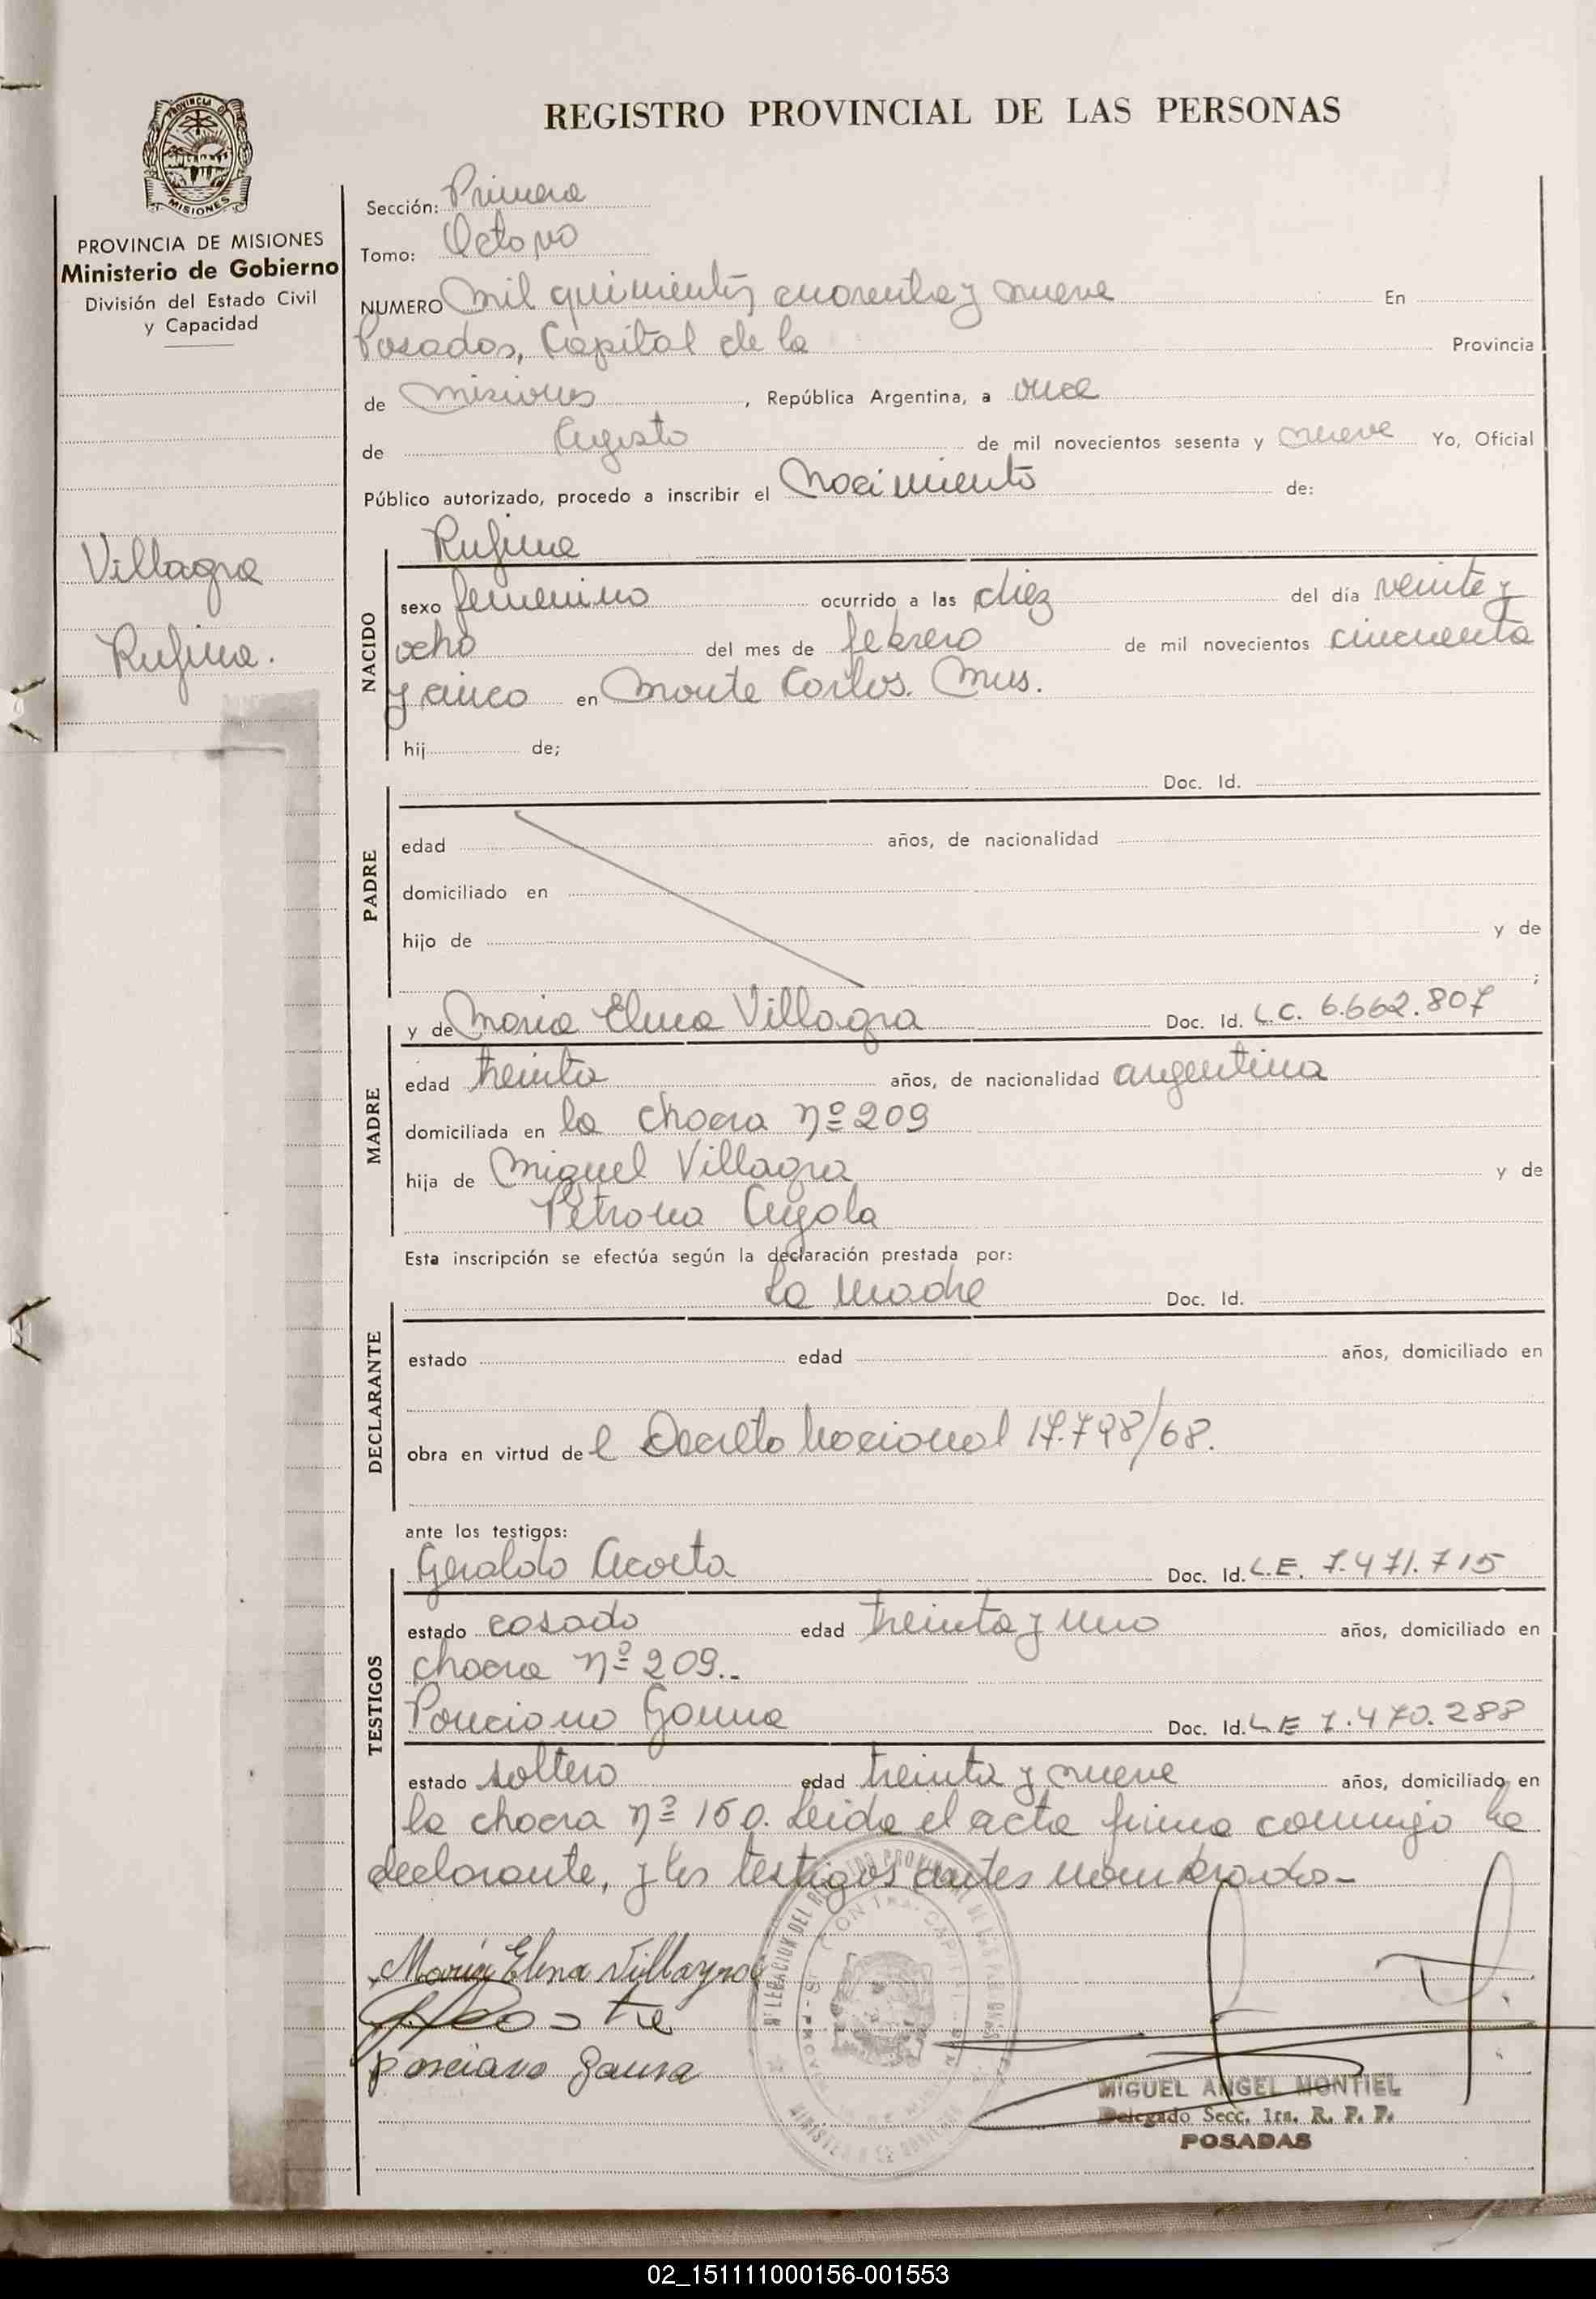 REGISTRO PROVINCIAL DE LAS PERSONAS
PROVINCIA DE
MISIONES
PROVINCIA DE MISIONES
Ministerio de Gobierno
División del Estado Civil
y Capacidad
Villagra
Rufina.
Sección: Primera
Tomo: Octavo
NUMERO Mil quinientos cuarenta y nueve En
Posadas, Capital de la Provincia
de Misiones, República Argentina, a once
de Agosto de mil novecientos sesenta y nueve Yo, Oficial
Público autorizado, procedo a inscribir el Nacimiento de:
Rufina
NACIDO
sexo femenino ocurrido a las diez del día veinte y
ocho del mes de febrero de mil novecientos cincuenta
y cinco en Monte Carlos. Mns.
hij de;
Doc. Id.
PADRE
edad años, de nacionalidad
domiciliado en
hijo de y de
;
y de Maria Elena Villagra Doc. Id. L.C. 6.662.807
MADRE
edad treinta años, de nacionalidad argentina
domiciliada en la chacra nº 209
hija de Miguel Villagra y de
Petrona Ayala
Esta inscripción se efectúa según la declaración prestada por:
La madre Doc. Id.
DECLARANTE
estado edad años, domiciliado en
obra en virtud de l Decreto Nacional 17.798/68.
ante los testigos:
Geraldo Acosta Doc. Id. L.E. 7.471.715
TESTIGOS
estado casado edad treinta y uno años, domiciliado en
chacra nº 209..
Ponciano Gauna Doc. Id. L E 7.470.288
estado soltero edad treinta y nueve años, domiciliado en
la chacra nº 150. Leida el acta firma conmigo la
declarante, y los testigos antes nombrados-
María Elena Villagra
Ponciano Gauna
MIGUEL ANGEL MONTIEL
Delegado Secc. 1ra. R. P. P.
POSADAS
02_151111000156-001553